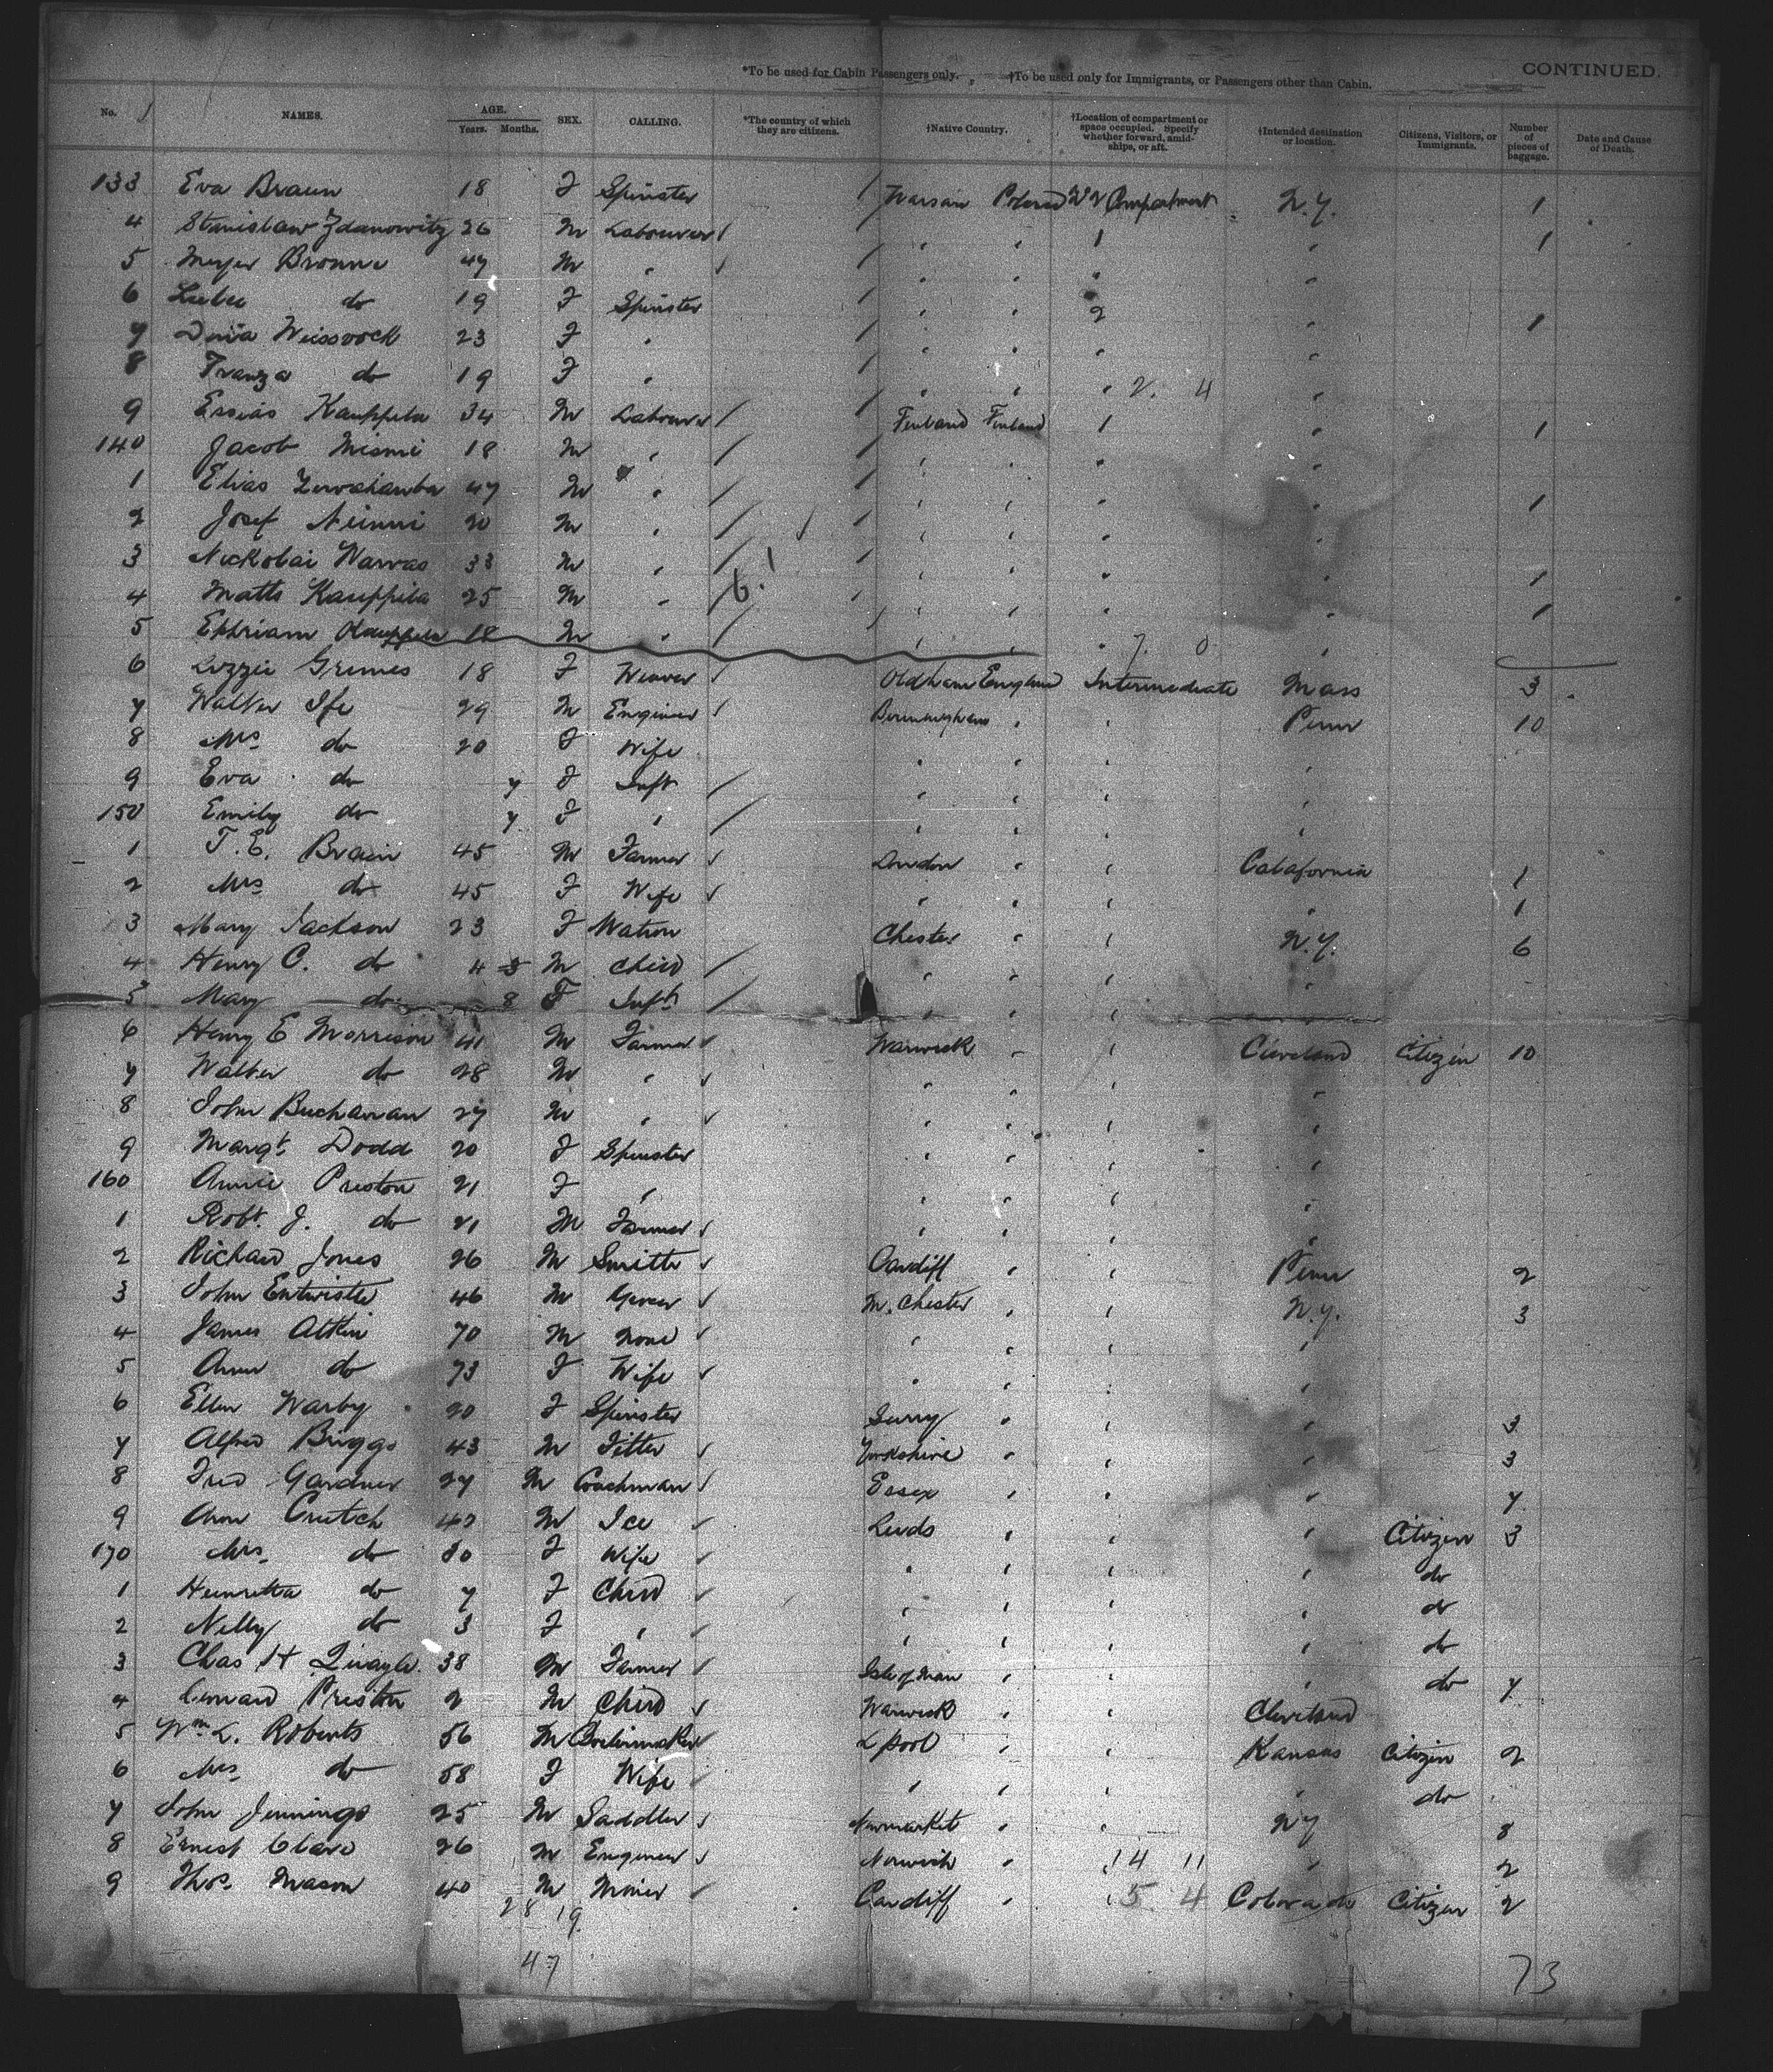 *To be used for Cabin Passengers only. †To be used only for Immigrants, or Passengers other than Cabin. CONTINUED.
No. NAMES. AGE. Years. Months. SEX. CALLING. *The country of which they are citizens. †Native Country. †Location of compartment or space occupied. Specify whether forward, amidships, or aft. †Intended destination or location. Citizens, Visitors, or Immigrants. Number of pieces of baggage. Date and Cause of Death.
133 Eva Braun 18 F Spinster Warsaw Poland Compartment N.Y. 1
4 Stanislaw Zdanowitz 26 M Labourer " " 1 " 1
5 Meyer Bronne 47 M " " " " "
6 do 19 F Spinster " " 2 " 1
7 Weissrock 23 F " " " " "
8 Franza do 19 F " " " " 2. 4 "
9 Kauppila 34 M Labourer Finland Finland 1 " 1
140 Jacob 18 M " " " " "
1 Elias 47 M " " " " " 1
2 Josef Niemi 20 M " " " " "
3 Nickolai Warvas 33 M " 6! " " " " 1
4 Matts Kauppila 25 M " " " " 1
5 Ephriam Kauppila 18 M " " " " 7. 0 "
6 Lizzie Grimes 18 F Weaver Oldham England Intermediate Mass 3
7 Walter Ife 29 M Engineer Birmingham " " Penn 10
8 Mrs do 20 F Wife " " " "
9 Eva do 7 F Inft " " " "
150 Emily do 7 F " " " " "
1 T. E. Brain 45 M Farmer London " " Calafornia 1
2 Mrs do 45 F Wife " " " " 1
3 Mary Jackson 23 F Matron Chester " " N.Y. 6
4 Henry C. do 4 M Child " " " "
5 Mary do 8 F Inft " " "
6 Henry E Morrison 41 M Farmer Warwick " " Cleveland Citizen 10
7 Walter do 28 M " " " " "
8 John Buchanan 27 M " " " " "
9 Margt. Dodd 20 F Spinster " " " "
160 Annie Preston 21 F " " " " "
1 Robt. J. do 21 M Farmer " " " "
2 Richard Jones 26 M Smith Cardiff " " Penn 2
3 John Entwistle 46 M M.chester " " N.Y. 3
4 James Atkin 70 M None " " " "
5 Ann do 73 F Wife " " "
6 Ellen Warby 20 F Spinster Surry " " " 3
7 Alfred Briggs 43 M Fitter Yorkshire " " " 3
8 Fred Gardner 27 M Coachman Essex " " " 7
9 Crutch M Leeds " " " Citizen 3
170 Mrs. do F Wife " " " " do
1 Henretta do 7 F Child " " " " do
2 Nelly do 3 F " " " " " do
3 Chas H Quayle. 38 M Farmer Isle of Man " " " do 7
4 Leonard Preston 2 M Child Warwick " " Cleveland
5 Wm L. Roberts 56 M Boilermaker L'pool " " Kansas Citizen 2
6 Mrs do 58 F Wife " " " " do
7 John Jennings 25 M Saddler Newmarket " " NY 8
8 Ernest Clare 26 M Engineer Norwich " 14 11 " 2
9 Thos. Mason 40 M Miner Cardiff " " 5 4 Colorado Citizen 2
28 19.
47 73